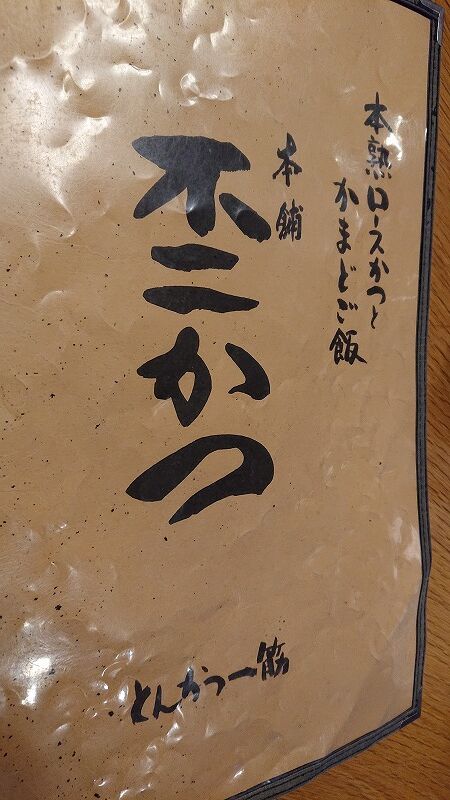 本熟ロースかつと
かまどご飯
本舗
不二かつ
とんかつ一筋